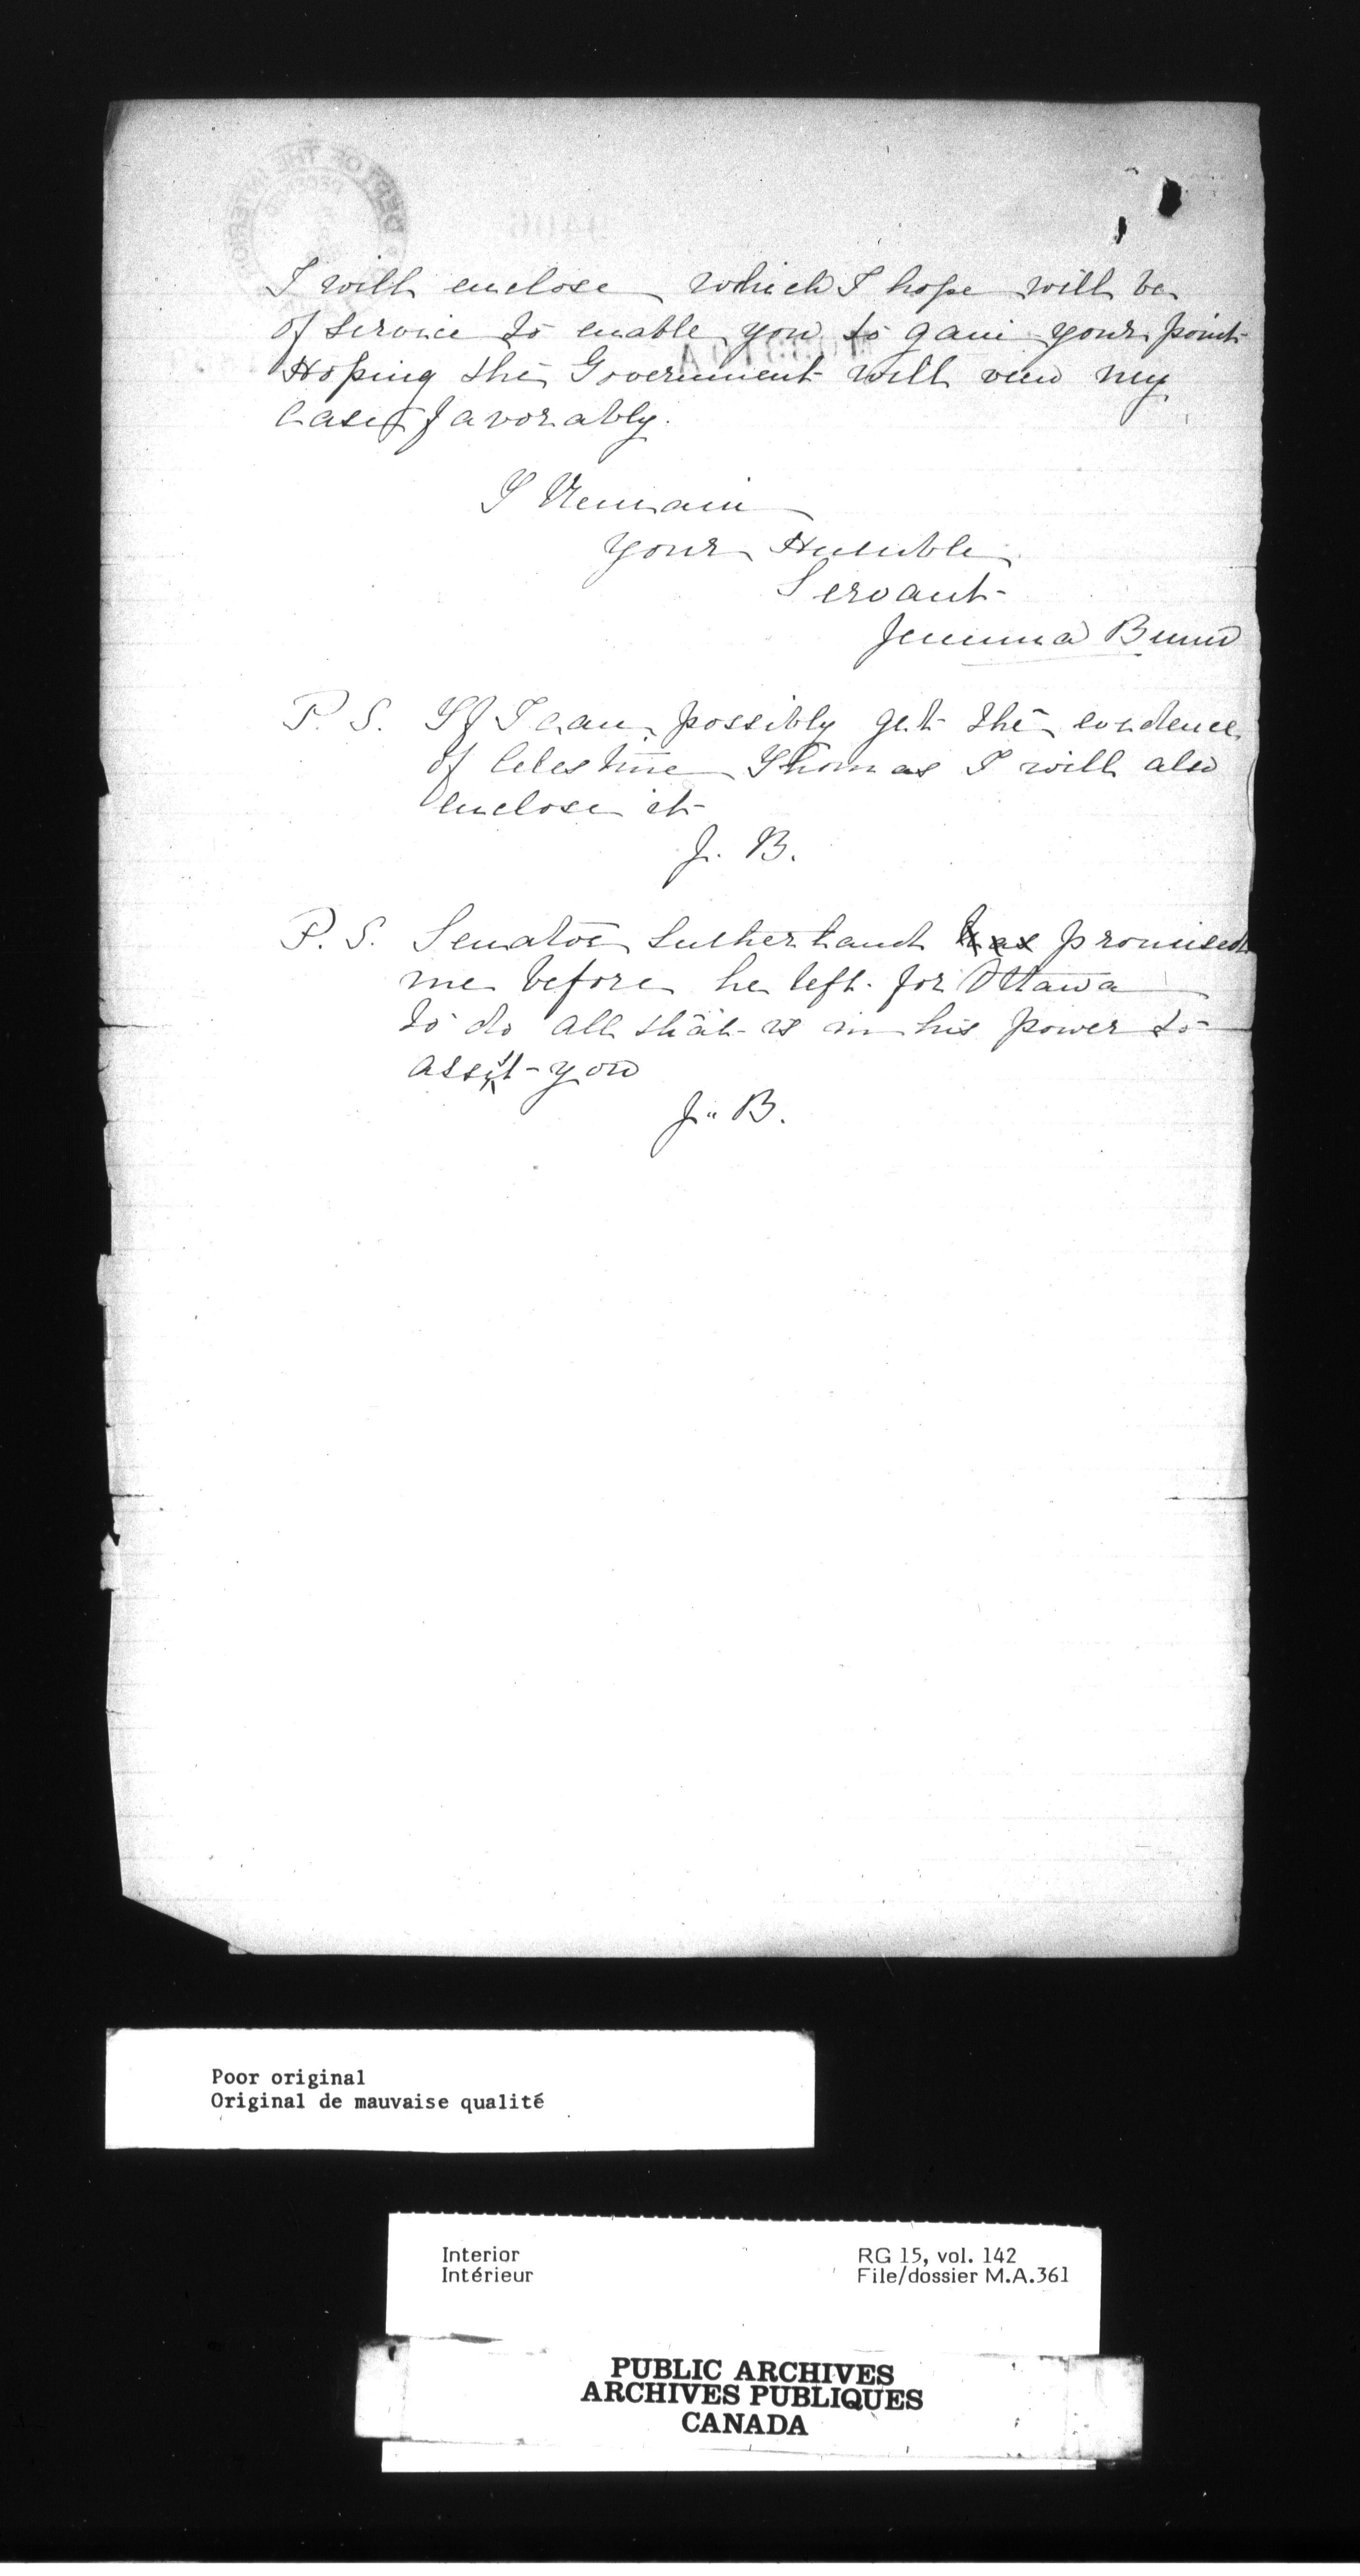 I will enclose which I hope will be
of service to enable you to gain your point
Hoping the Government will view my
case favorably.
I Remain
your Humble
Servant
Jemima Bunn
P. S. If I can possibly get the evidence
of Celestine Thomas I will also
enclose it
J. B.
P. S. Senator Sutherland has promised
me before he left for Ottawa
to do all that is in his power to
assist you
J. B.
Poor original
Original de mauvaise qualité
Interior
Intérieur
RG 15, vol. 142
File/dossier M.A.361
PUBLIC ARCHIVES
ARCHIVES PUBLIQUES
CANADA